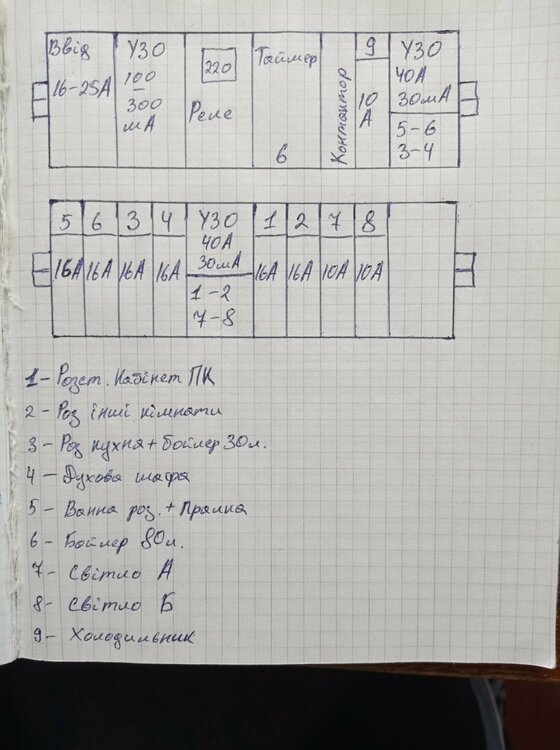 Ввід
16-25А
УЗО
100
-
300
мА
220
Реле
Таймер
6
Контактор
9
10
А
УЗО
40А
30мА
5-6
3-4
5
16А
6
16А
3
16А
4
16А
УЗО
40А
30мА
1-2
7-8
1
16А
2
16А
7
10А
8
10А
1- Розет. Кабінет ПК
2- Роз інші кімнати
3- Роз кухна + бойлер 30л.
4- Духова шафа
5- Ванна роз. + Пралка
6- Бойлер 80л.
7- Світло А
8- Світло Б
9- Холодильник